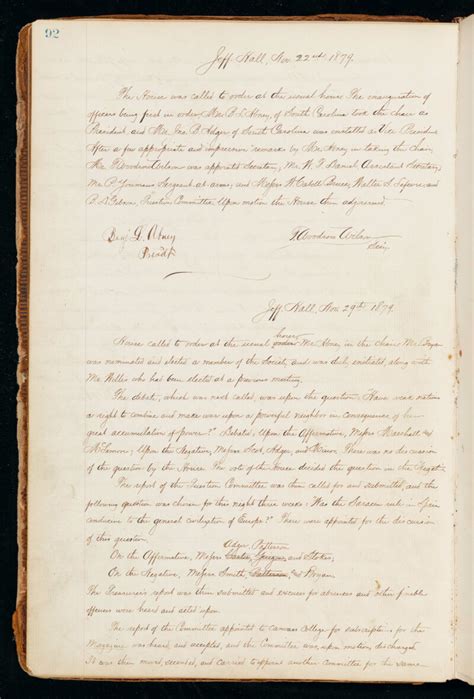 92
Jeff Hall, Nov 22nd 1879.
The House was called to order at the usual hour. The inauguration of
officers being first in order, Mr. B. L. Abney, of South Carolina took the chair as
President and Mr. Jas. B. Adger of South Carolina was installed as Vice President
After a few appropriate and impressive remarks by Mr. Abney in taking the chair,
Mr. F. Woodson was appointed Secretary, Mr. W. F. Daniel, Assistant Secretary,
Mr. P. Youmans Sergeant at arms, and Messrs. H. Cabell Bruce, Walter S. Lefevre, and
Question Committee. Upon motion the House then adjourned.
Benj. L. Abney
Presdt.
F. Woodson
Secy.
Jeff. Hall, Nov. 29th 1879.
hour
House called to order at the usual Mr. Abney in the chair. Mr. Bryan
was nominated and elected a member of the Society, and was duly initiated, along with
Mr. Willis who had been elected at a previous meeting.
The debate, which was next called, was upon the question "Have weak nations
a right to combine and make war upon a powerful neighbor in consequence of her
great accumulation of power?" Debated, Upon the Affirmative, Messrs Marshall and
McLemore; Upon the Negative, Messrs Scot, Adger, and Minor. There was no discussion
of the question by the House. The vote of the House decided the question in the Negative.
The report of the Question Committee was then called for and submitted, and the
following question was chosen for this night three weeks: "Was the Saracen rule in Spain
conducive to the general civilization of Europe?" There were appointed for the discussion
of this question.
Adger Patterson
On the Affirmative, Messrs and Stokes,
On the Negative, Messrs Smith, Patterson, and Bryan.
The Treasurer's report was then submitted and excuses for absences and other
offences were heard and acted upon.
The report of the Committee appointed to canvass College for for the
Magazine was heard, and accepted, and the Committee was, upon motion, discharged.
It was then moved, seconded, and carried to appoint another Committee for the same